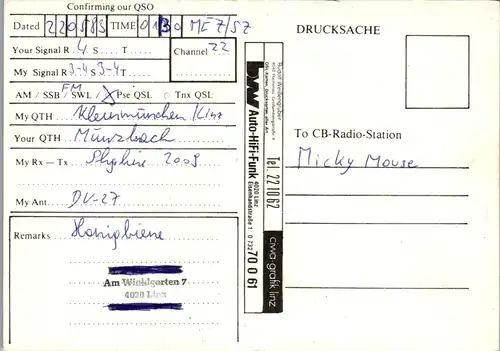 Confirming our QSO
Dated 220583 TIME 0130 MEZ/SZ
Your Signal R 4 S T
Channel 22
My Signal R 3-4 S 3-4 T
AM / SSB / SWL / FM X Pse QSL O Tnx QSL
My QTH Kleinmünchen / Linz
Your QTH Münzbach
My Rx – Tx 2008
My Ant. DV-27
Remarks Honigbiene
Am Winklgarten 7
4020 Linz
Auto-HiFi-Funk 4020 Linz
Eisenhandstraße 1 0 732 70 0 61
Tel. 22 10 62
ciwa-grafik linz
DRUCKSACHE
To CB-Radio-Station
Micky Mouse